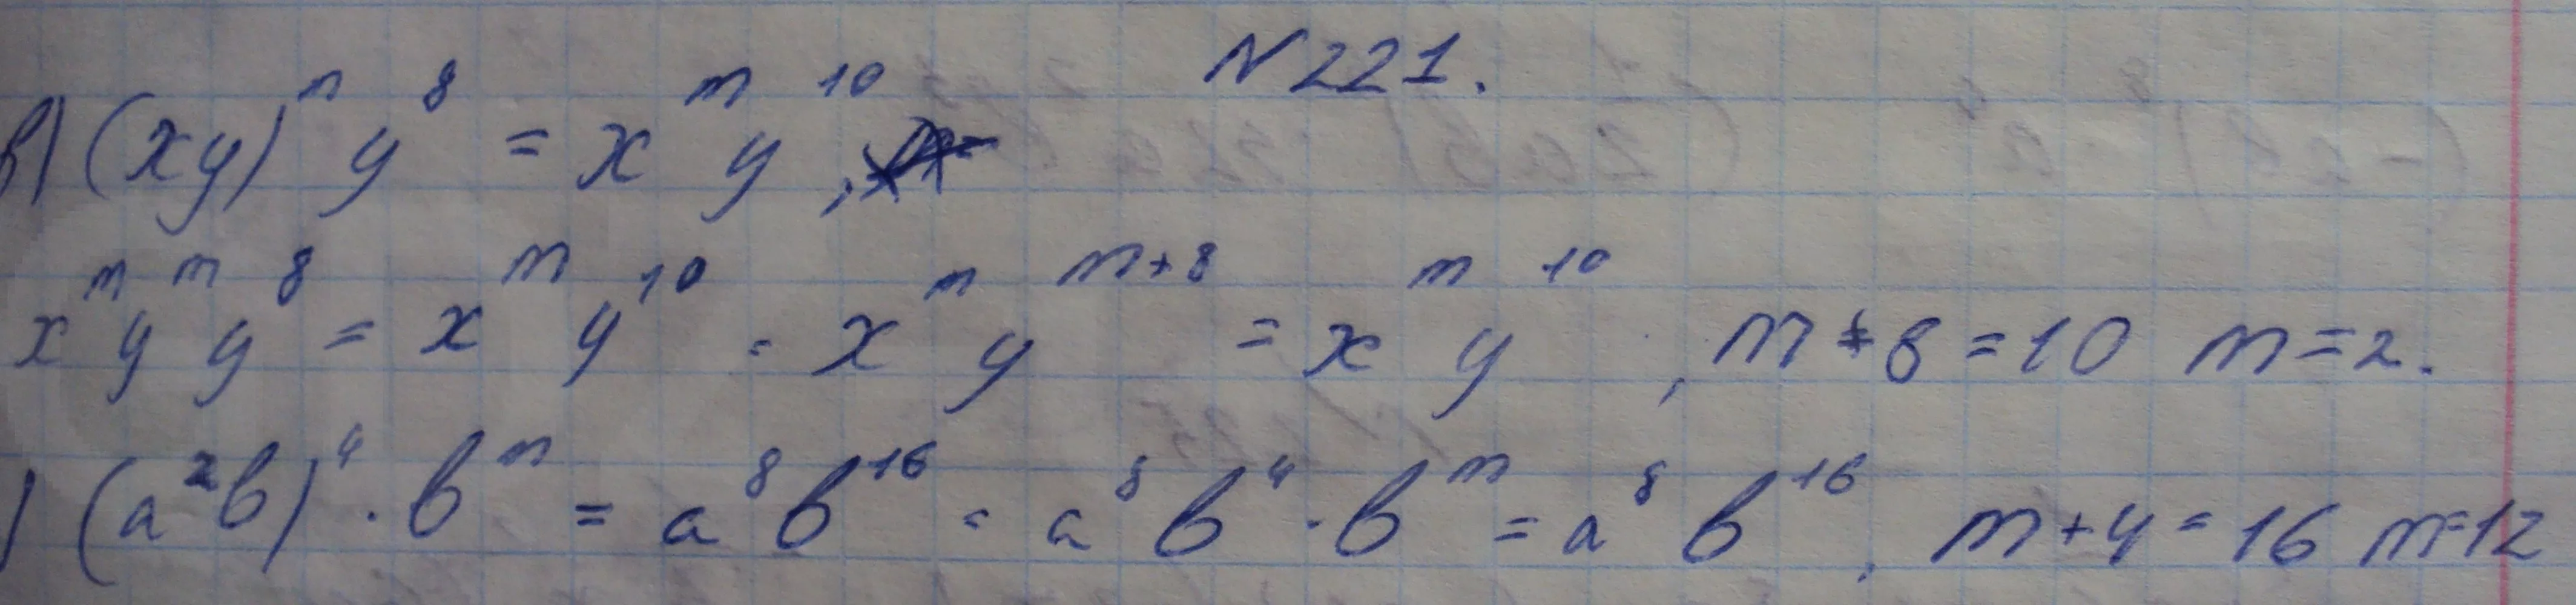 N 221.
в) (xy)^m y^8 = x^m y^10,
x^m y^m y^8 = x^m y^10 = x^m y^m+8 = x^m y^10, m + 8 = 10 m = 2.
) (a^2 b)^4 · b^m = a^8 b^16 = a^8 b^4 · b^m = a^8 b^16, m + 4 = 16 m = 12